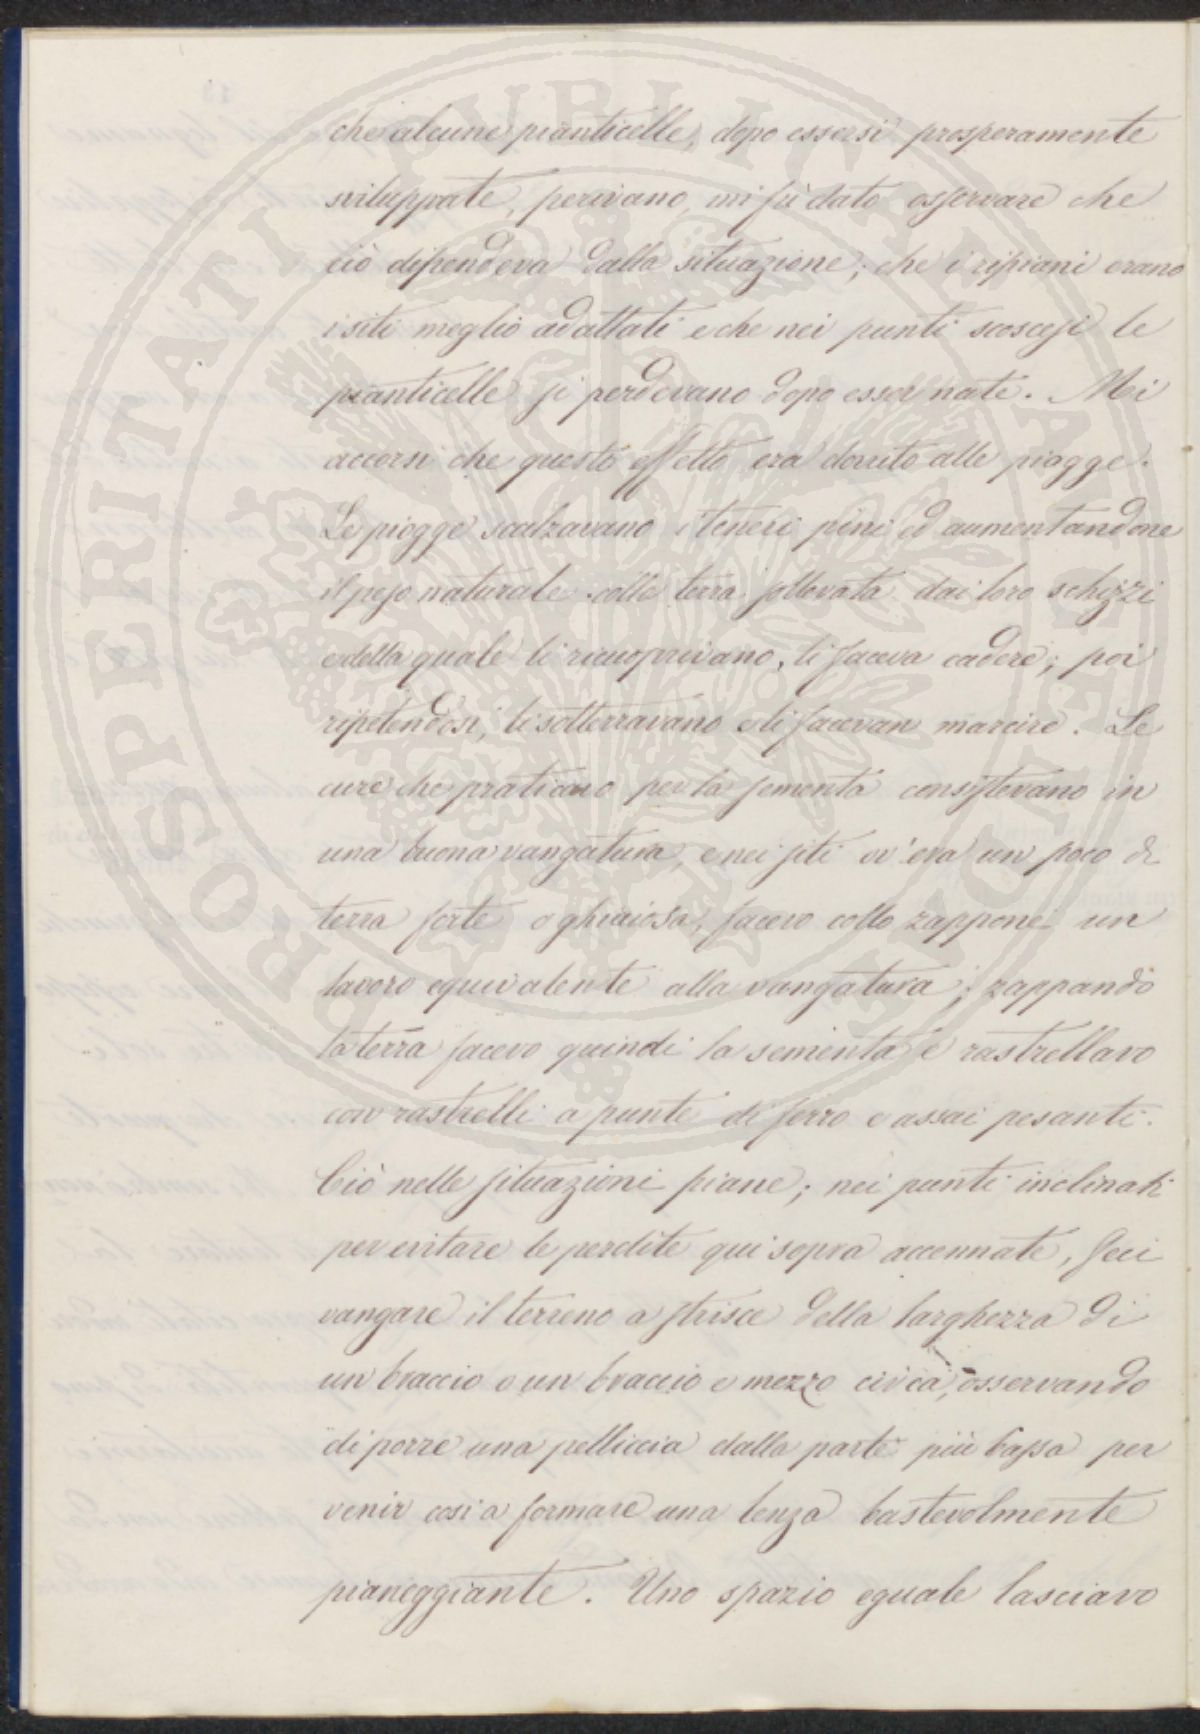 che alcune pianticelle, dopo essersi prosperamente
sviluppate, perivano, mi fù dato osservare che
ciò dipendeva dalla situazione; che i ripiani erano
i siti meglio adattati e che nei punti scoscesi le
pianticelle si perdevano dopo esser nate. Mi
accorsi che questo effetto era dovuto alle piogge.
Le piogge scalzavano i teneri pini ed aumentandone
il peso naturale colla terra sollevata dai loro schizzi
e della quale li ricuoprivano, li faceva cadere; poi
ripetendosi, li sotterravano e li facevan marcire. Le
cure che praticavo per la sementa consistevano in
una buona vangatura, e nei siti ov'era un poco di
terra forte o ghiaiosa, facevo collo zappone un
lavoro equivalente alla vangatura; zappando
la terra facevo quindi la sementa e rastrellavo
con rastrelli a punte di ferro e assai pesanti.
Ciò nelle situazioni piane; nei punti inclinati
per evitare le perdite qui sopra accennate, feci
vangare il terreno a strisce della larghezza di
un braccio o un braccio e mezzo circa, osservando
di porre una pelliccia dalla parte più bassa per
venir così a formare una lenza bastevolmente
pianeggiante. Uno spazio eguale lasciavo
PROSPERITATI PUBLICAE AUGENDAE